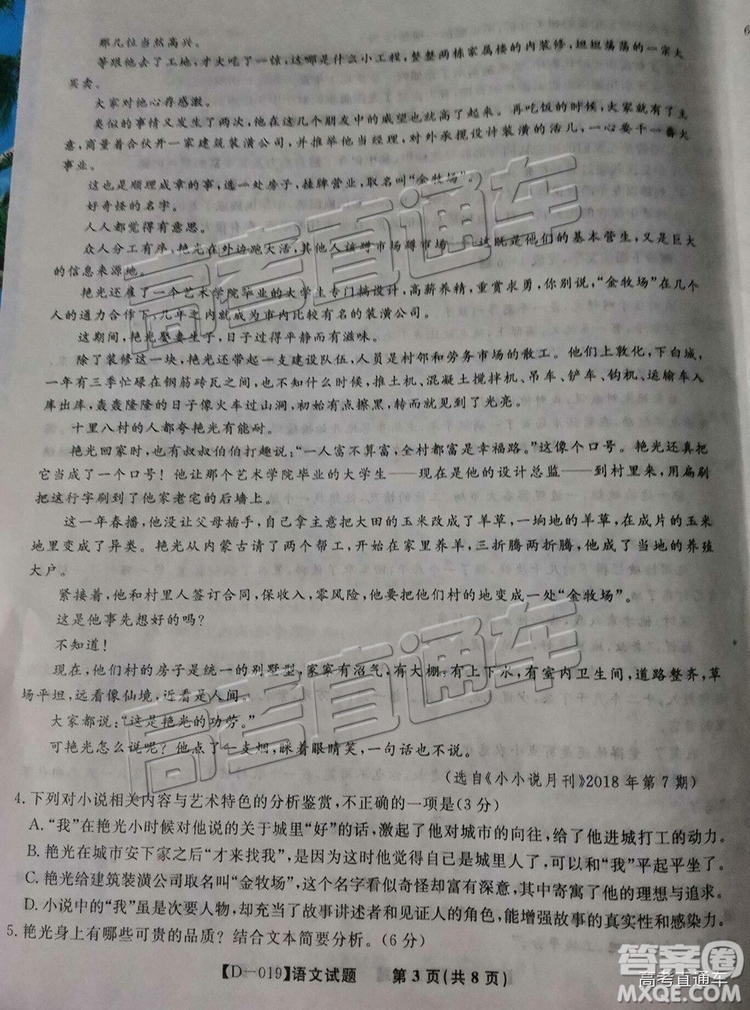 那几位当然高兴。
等跟他们去了工地，才大吃了一惊，这哪是什么小工程，整整两栋家属楼的内装修，坦坦荡荡的一宗大
买卖。
大家对他心存感激。
类似的事情又发生了两次，他在这几个人中的威望也就高了起来。再吃饭的时候，大家就有了主
意，商量着合伙开一家建筑装潢公司，并推举他当经理，对外承揽设计装潢的活儿，一心要干一番大
事业。
这也是顺理成章的事，选一处房子，挂牌营业，取名叫“金牧场”。
好奇怪的名字。
人人都觉得有意思。
众人分工有序，艳光在外边跑大活，其他人该蹲市场蹲市场——这既是他们的基本营生，又是巨大
的信息来源地。
艳光还雇了一个艺术学院毕业的大学生专门搞设计，高薪养精，重赏求勇，你别说，“金牧场”在几个
人的通力合作下，几年之内就成为市内比较有名的装潢公司。
这期间，艳光娶妻生子，日子过得平静而有滋味。
除了装修这一块，艳光还带起一支建设队伍，人员是村邻和劳务市场的散工。他们上敦化，下白城，
一年有三季忙碌在钢筋砖瓦之间，也不知什么时候，推土机、混凝土搅拌机、吊车、铲车、钩机，一应俱全地
入库出库，轰轰隆隆的日子像火车过山洞，初始有点擦黑，转瞬就见到了光亮。
十里八村的人都夸艳光有能耐。
艳光回家时，也有叔叔伯伯打趣说：“一人富不算富，全村都富是幸福路。”这像个口号。艳光真把
它当成了一个口号！他让那个艺术学院毕业的大学生——现在是他的设计总监——到村里来，用扁刷
把这行字刷到了他家老宅的后墙上。
这一年春播，他没让父母插手，自己拿主意把大田的玉米改成了羊草，一垧地的羊草，在成片的玉米
地里成了异类。艳光从内蒙古请了两个帮工，开始在家里养羊，三折腾两折腾，他成了当地的养殖
大户。
紧接着，他和村里人签订合同，保收入，零风险，他要把他们村的地变成一处“金牧场”。
这是他事先想好的吗？
不知道！
现在，他们村的房子是统一的别墅型，家家有沼气，有大棚，有上下水，有室内卫生间，道路整齐，草
场平坦，远看像仙境，近看是人间。
大家都说：“这是艳光的功劳。”
可艳光怎么说呢？他点了一支烟，眯着眼睛笑，一句话也不说。
（选自《小小说月刊》2018年第7期）
4.下列对小说相关内容与艺术特色的分析鉴赏，不正确的一项是（3分）
A.“我”在艳光小时候对他说的关于城里“好”的话，激起了他对城市的向往，给了他进城打工的动力。
B.艳光在城市安下家之后“才来找我”，是因为这时他已经是城里人了，可以和“我”平起平坐了。
C.艳光给建筑装潢公司取名叫“金牧场”，这个名字看似奇怪却富有深意，其中寄寓了他的理想与追求。
D.小说中的“我”虽是次要人物，却充当了故事讲述者和见证者的角色，能增强故事的真实性和感染力。
5.艳光身上有哪些可贵的品质？结合文本简要分析。（6分）
【D－019】语文试题 第3页（共8页）
高考直通车
高考直通车
答案圈
高考直通车
MXQE.COM